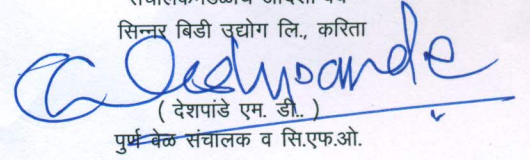 सिन्नर बिडी उद्योग लि., करिता
Deshpande
( देशपांडे एम. डी.. )
पुर्ण वेळ संचालक व सि.एफ.ओ.